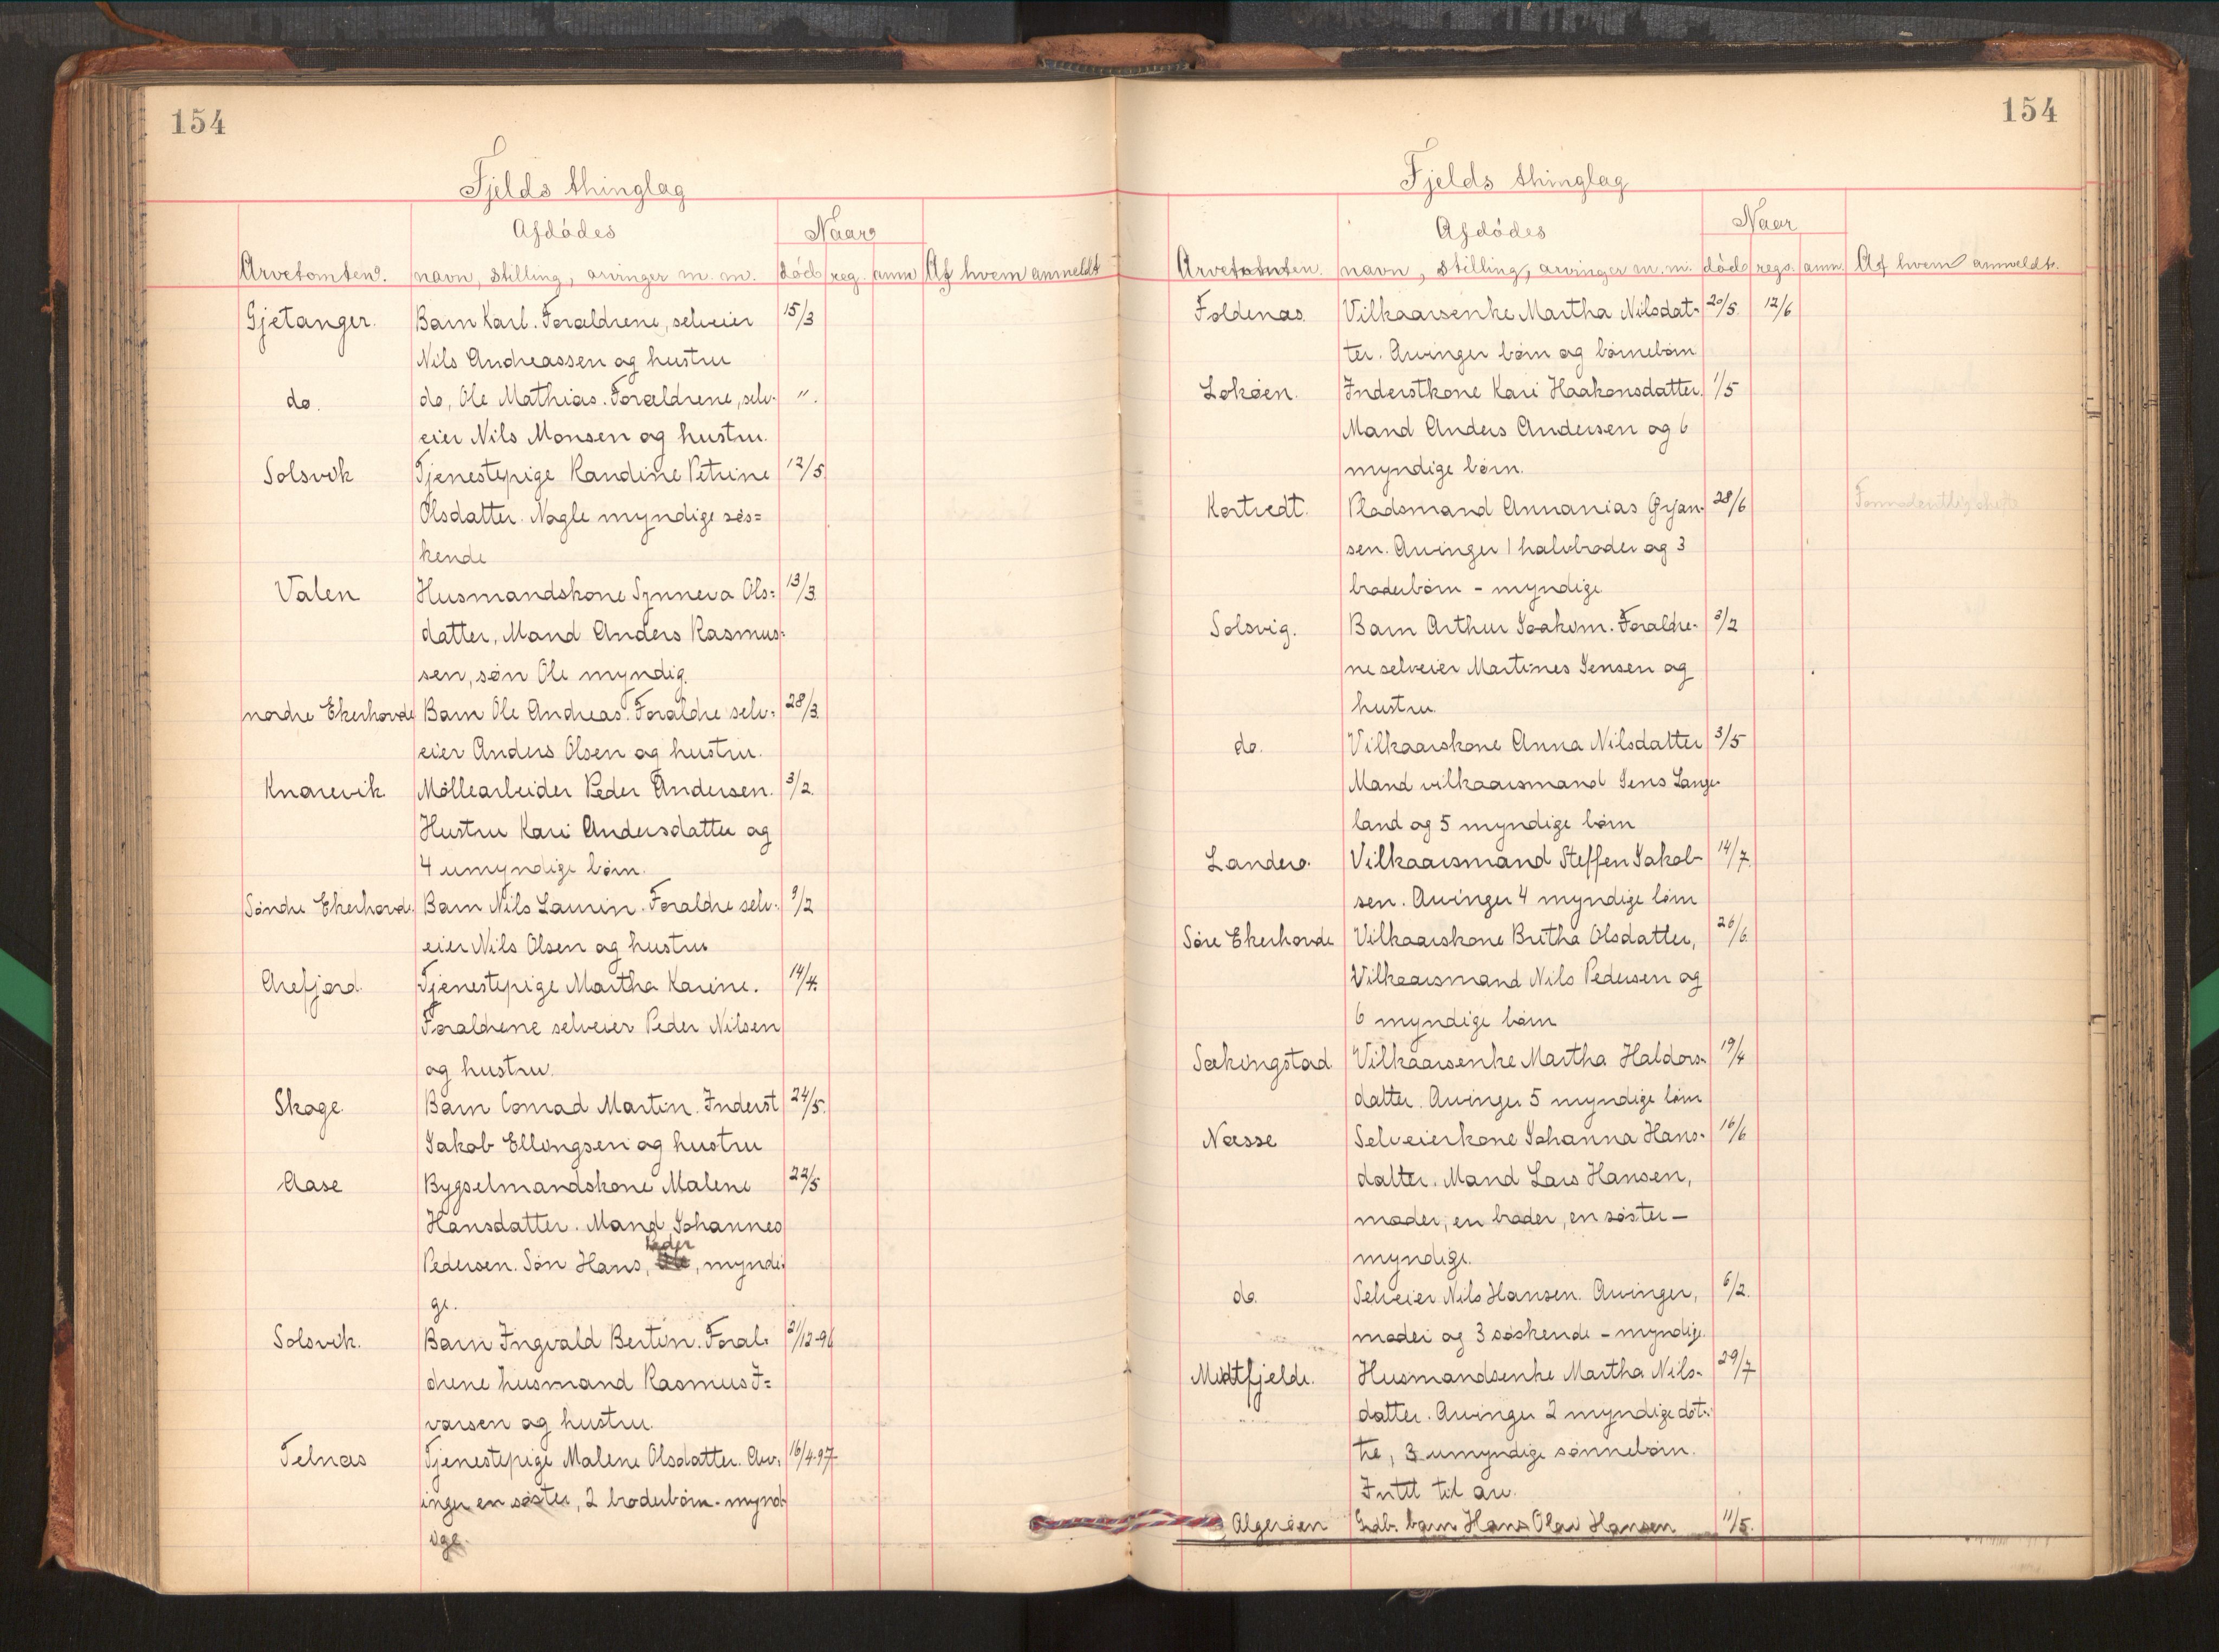 154
Fjelds thinglag
Afdødes
Naar
Arvetomten. navn, stilling, arvinger m. m. død reg. anm Af hvem anmeldt
Gjetanger. Barn Karl. Forældrene, selveier 15/3
Nils Andreassen og hustru
do. do, Ole Mathias. Forældrene, selv- ".
eier Nils Monsen og hustru.
Solsvik Tjenestepige Randine Petrine 12/5
Olsdatter. Nogle myndige søs=
kende
Valen Husmandskone Synneva Ols= 13/3.
datter, Mand Anders Rasmus=
sen, søn Ole myndig.
nordre Ekerhovde Barn Ole Andreas. Foraldre selv- 28/3.
eier Anders Olsen og hustru.
Knarevik Møllearbeider Peder Andersen. 3/2.
Hustru Kari Andersdatter og
4 umyndige børn.
Søndre Ekerhovde. Barn Nils Laurin. Foraldre selv- 9/2
eier Nils Olsen og hustru
Arefjord. Tjenestepige Martha Karine. 14/4.
Foraldrene selveier Peder Nilsen
og hustru.
Skoge. Barn Conrad Martin. Inderst 24/5.
Jakob Ellingsen og hustru
Aase Bygselmandskone Malene 22/5
Hansdatter. Mand Johannes
Peder
Pedersen. Søn Hans, , myndi-
ge.
Solsvik. Barn Ingvald Bertin. Foral- 21/12-96
drene husmand Rasmus I=
varsen og hustru.
Telnæs Tjenestepige Malene Olsdatter. Arv- 16/4-97
inger en søster, 2 broderbørn - mynd-
ige.
154
Fjelds thinglag
Afdødes
Naar
Arvetomten. navn, stilling, arvinger m. m. død regs. anm. Af hvem anmeldt.
Foldenæs. Vilkaarsenke Martha Nilsdat- 20/5. 12/6
ter. Arvinger børn og børnebørn
Lokøen. Inderstkone Kari Haakonsdatter. 1/5
Mand Anders Andersen og 6
myndige børn.
Kortvedt. Pladsmand Annanias Ørjan- 28/6
sen. Arvinger 1 halvbroder og 3
broderbørn - myndige
Solsvig. Barn Arthur Joakim. Foraldre- 3/2
ne selveier Martines Jensen og
hustru.
do. Vilkaarskone Anna Nilsdatter 3/5
Mand vilkaarsmand Jens Lange-
land og 5 myndige børn
Landero. Vilkaarsmand Steffen Jakob- 14/7.
sen. Arvinger 4 myndige børn
Søre Ekerhovde Vilkaarskone Britha Olsdatter, 26/6.
Vilkaarsmand Nils Pedersen og
6 myndige børn
Sækingstad Vilkaarsenke Martha Haldors- 19/4
datter. Arvinger 5 myndige børn
Næsse Selveierkone Johanna Hans- 16/6
datter. Mand Lars Hansen,
moder, en broder, en søster -
myndige.
do. Selveier Nils Hansen. Arvinger, 6/2.
moder og 3 søskende - myndige.
Midtfjelde. Husmandsenke Martha Nils- 29/7
datter. Arvinger 2 myndige døt-
tre, 3 umyndige sønnebørn.
Intet til arv.
Algerøen Gdb. barn Hans Olai Hansen 11/5.